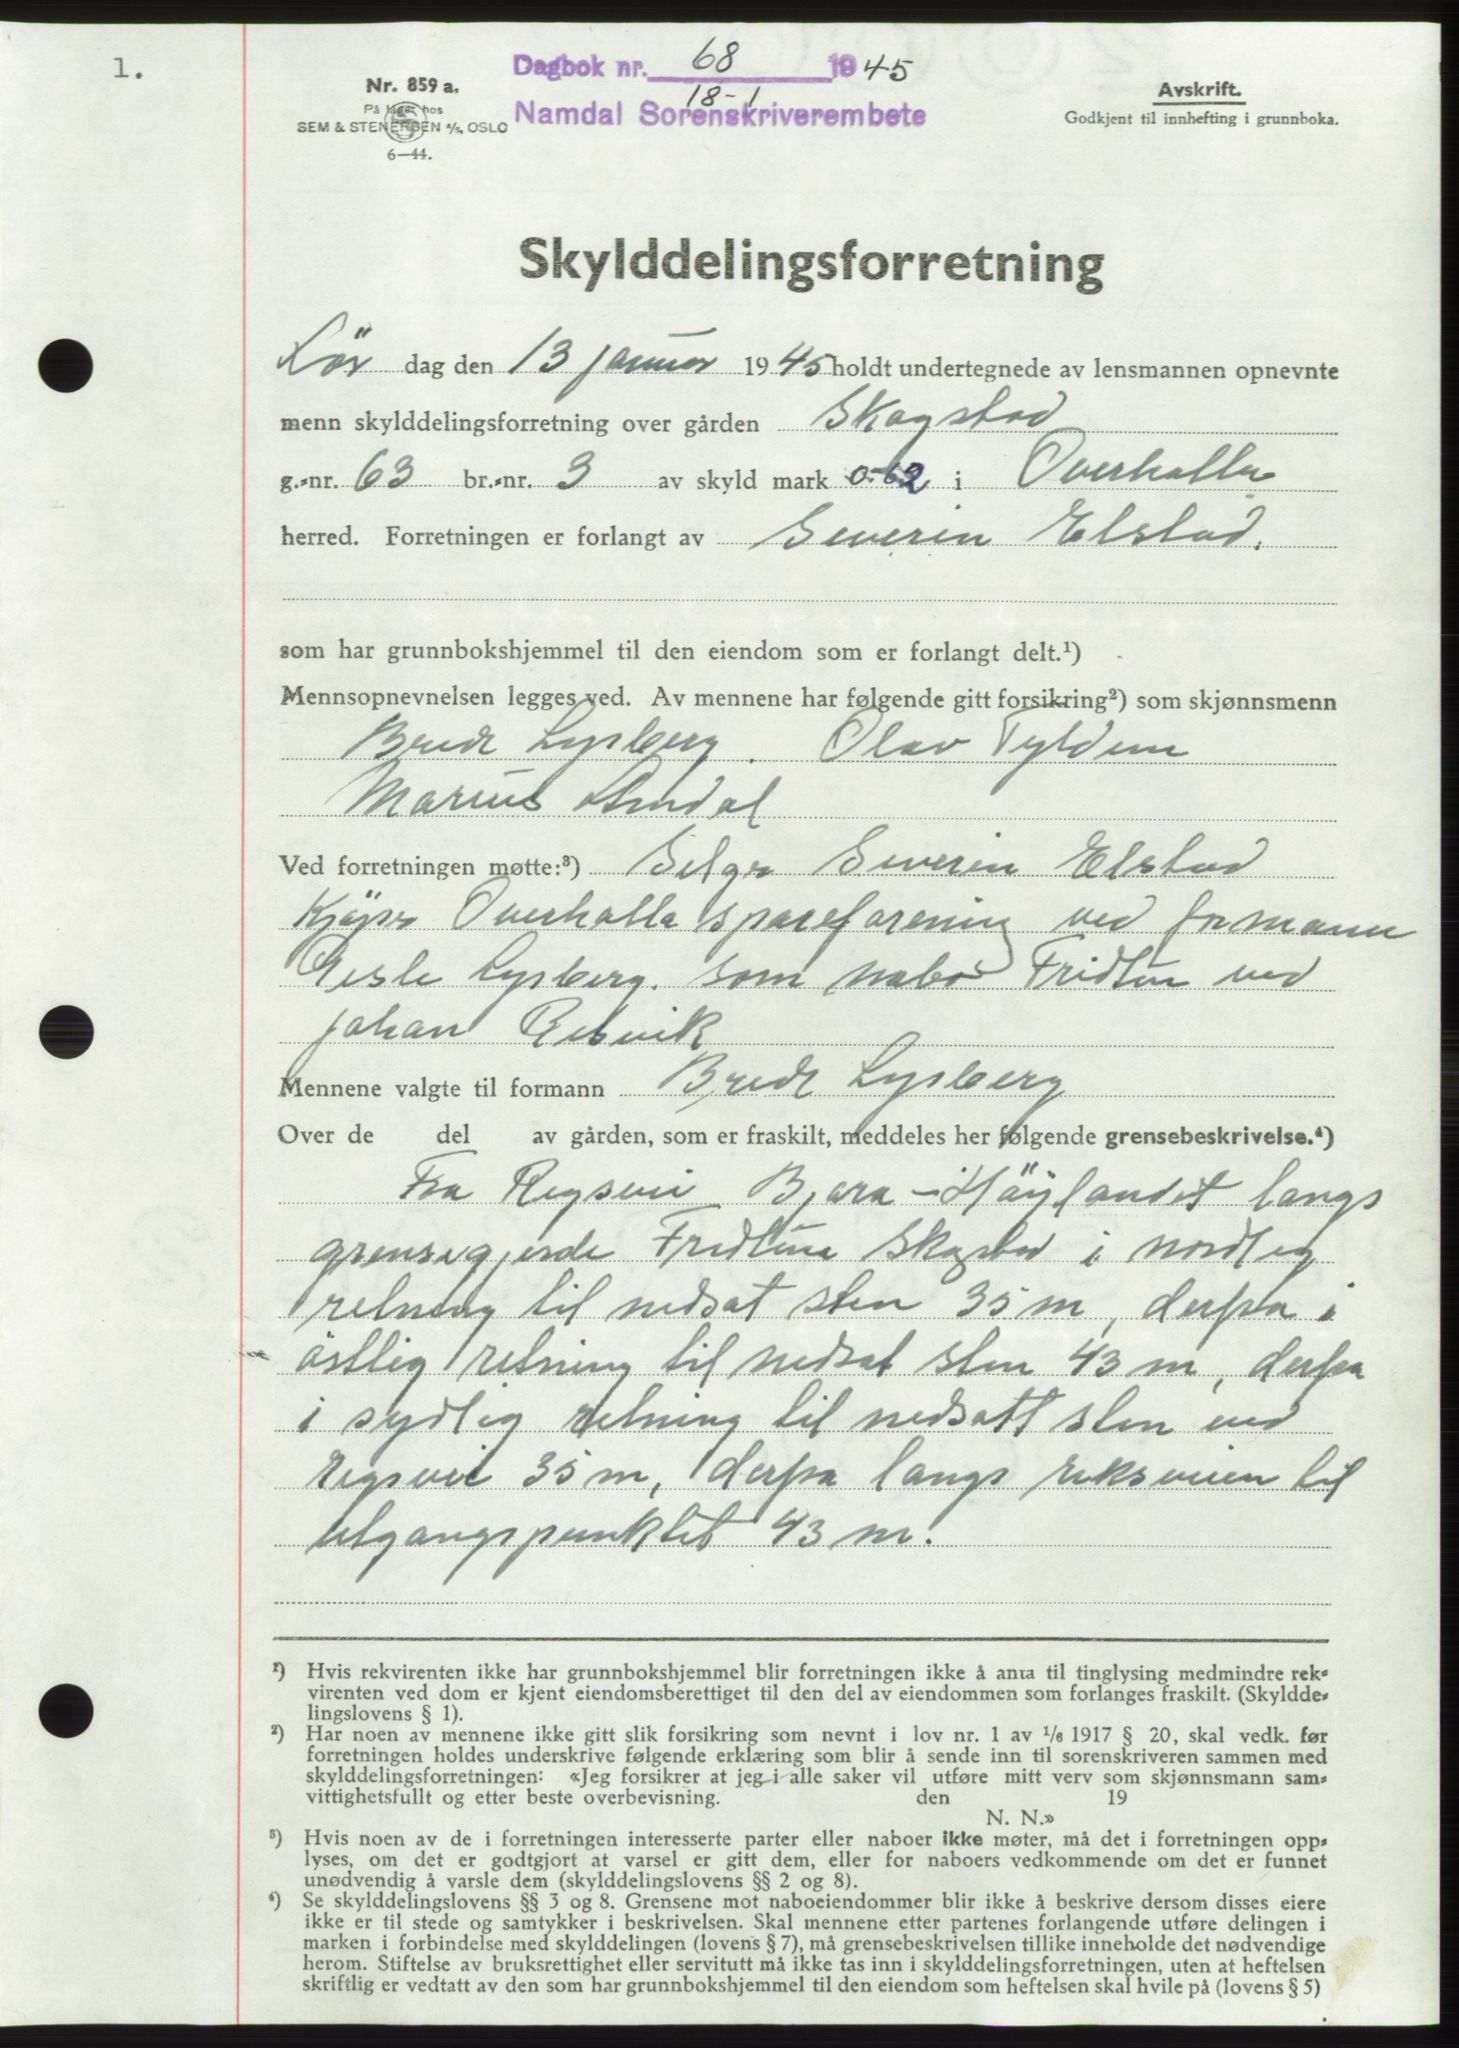 1.
Nr. 859 a.
På lager hos
SEM & STENERSEN A/S, OSLO
6—44.
Dagbok nr. 68 1945
18-1
Namdal Sorenskriverembete
Avskrift.
Godkjent til innhefting i grunnboka.
Skylddelingsforretning
Lör dag den 13 januar 1945 holdt undertegnede av lensmannen opnevnte
menn skylddelingsforretning over gården Skogstad
g.-nr. 63 br.-nr. 3 av skyld mark 0-62 i Overhalla
herred. Forretningen er forlangt av Severin Elstad.
som har grunnbokshjemmel til den eiendom som er forlangt delt.¹)
Mennsopnevnelsen legges ved. Av mennene har følgende gitt forsikring²) som skjønnsmenn
Brede Lysberg. Olav Tyldum
Marius Amdal
Ved forretningen møtte:³) Selger Severin Elstad
Kjöper Overhalla spareforening ved formann
Gisle Lysberg. som nabo Fridtun ved
Johan Resvik
Mennene valgte til formann Brede Lysberg
Over de del av gården, som er fraskilt, meddeles her følgende grensebeskrivelse.⁴)
Fra Regsvei Bjøra - Höylandet langs
grensegjerde Fredtun Skogstad i nordleg
retning til nedsat sten 35 m, derpa i
östlig retning til nedsat sten 43 m, derpa
i sydlig retning til nedsatt sten ved
regsvei 35 m, derpa langs reksveien til
utgangspunktet 43 m.
¹) Hvis rekvirenten ikke har grunnbokshjemmel blir forretningen ikke å anta til tinglysing medmindre rek-
virenten ved dom er kjent eiendomsberettiget til den del av eiendommen som forlanges fraskilt. (Skyldde-
lingslovens § 1).
²) Har noen av mennene ikke gitt slik forsikring som nevnt i lov nr. 1 av 1/6 1917 § 20, skal vedk. før
forretningen holdes underskrive følgende erklæring som blir å sende inn til sorenskriveren sammen med
skylddelingsforretningen: «Jeg forsikrer at jeg i alle saker vil utføre mitt verv som skjønnsmann sam-
vittighetsfullt og etter beste overbevisning. den 19
N. N.»
³) Hvis noen av de i forretningen interesserte parter eller naboer ikke møter, må det i forretningen opp-
lyses, om det er godtgjort at varsel er gitt dem, eller for naboers vedkommende om det er funnet
unødvendig å varsle dem (skylddelingslovens §§ 2 og 8).
⁴) Se skylddelingslovens §§ 3 og 8. Grensene mot naboeiendommer blir ikke å beskrive dersom disses eiere
ikke er til stede og samtykker i beskrivelsen. Skal mennene etter partenes forlangende utføre delingen i
marken i forbindelse med skylddelingen (lovens § 7), må grensebeskrivelsen tillike inneholde det nødvendige
herom. Stiftelse av bruksrettighet eller servitutt må ikke tas inn i skylddelingsforretningen, uten at heftelsen
skriftlig er vedtatt av den som har grunnbokshjemmel til den eiendom som heftelsen skal hvile på (lovens § 5)